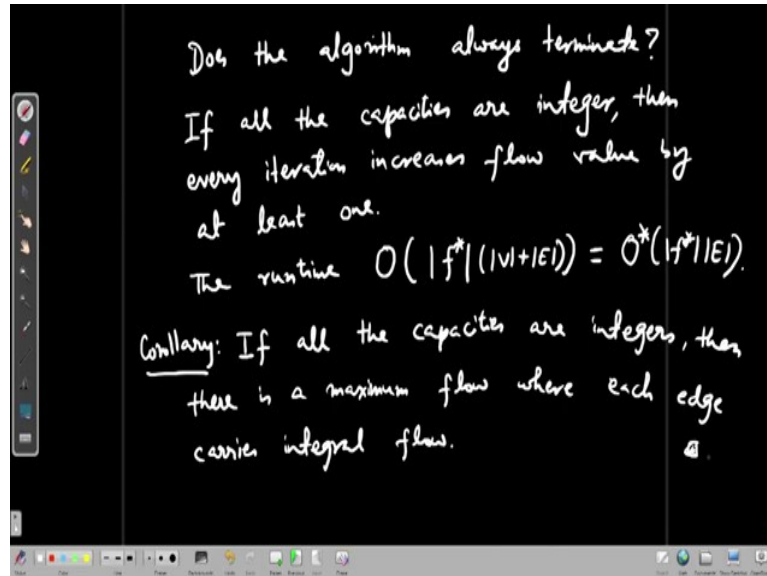 Does the algorithm always terminate?
If all the capacities are integer, then
every iteration increases flow value by
at least one.
The runtime O( |f*| (|V|+|E|)) = O*(|f*||E|).
Corollary: If all the capacities are integers, then
there is a maximum flow where each edge
carries integral flow.